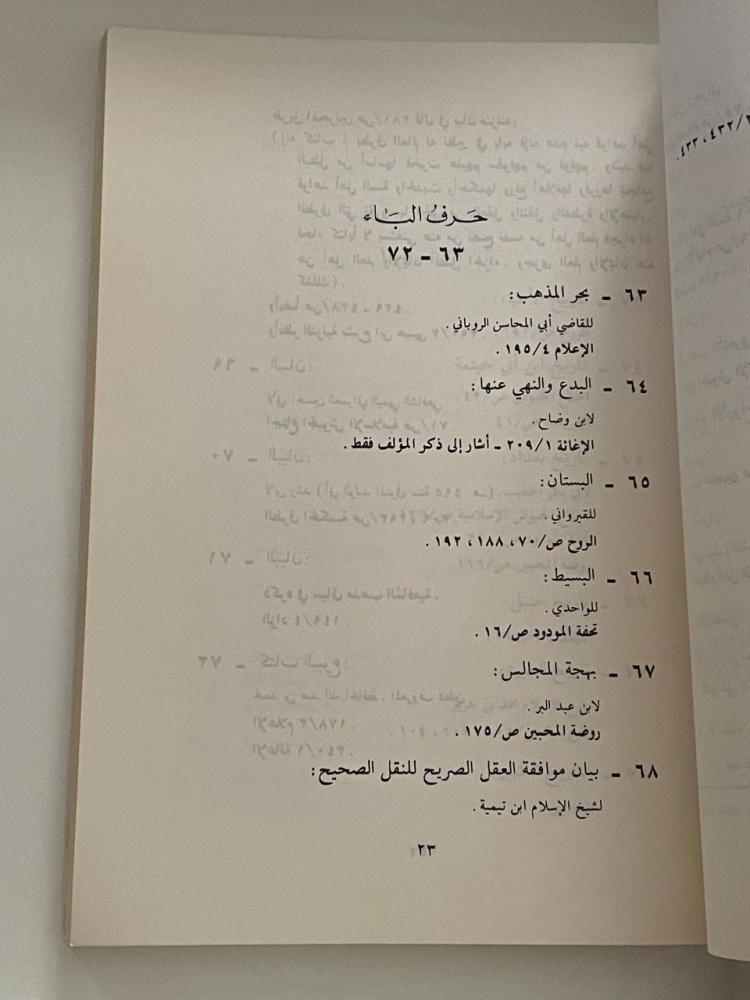 حَرفُ البَاء
٦٣ - ٧٢
٦٣ - بحر المذهب:
للقاضي أبي المحاسن الروباني.
الإعلام ١٩٥/٤.
٦٤ - البدع والنهي عنها:
لابن وضاح.
الإغاثة ٢٠٩/١ - أشار إلى ذكر المؤلف فقط.
٦٥ - البستان:
للقيرواني.
الروح ص/٧٠، ١٨٨، ١٩٢.
٦٦ - البسيط:
للواحدي.
تحفة المودود ص/١٦.
٦٧ - بهجة المجالس:
لابن عبد البر.
روضة المحبين ص/١٧٥.
٦٨ - بيان موافقة العقل الصريح للنقل الصحيح:
لشيخ الإسلام ابن تيمية.
٢٣